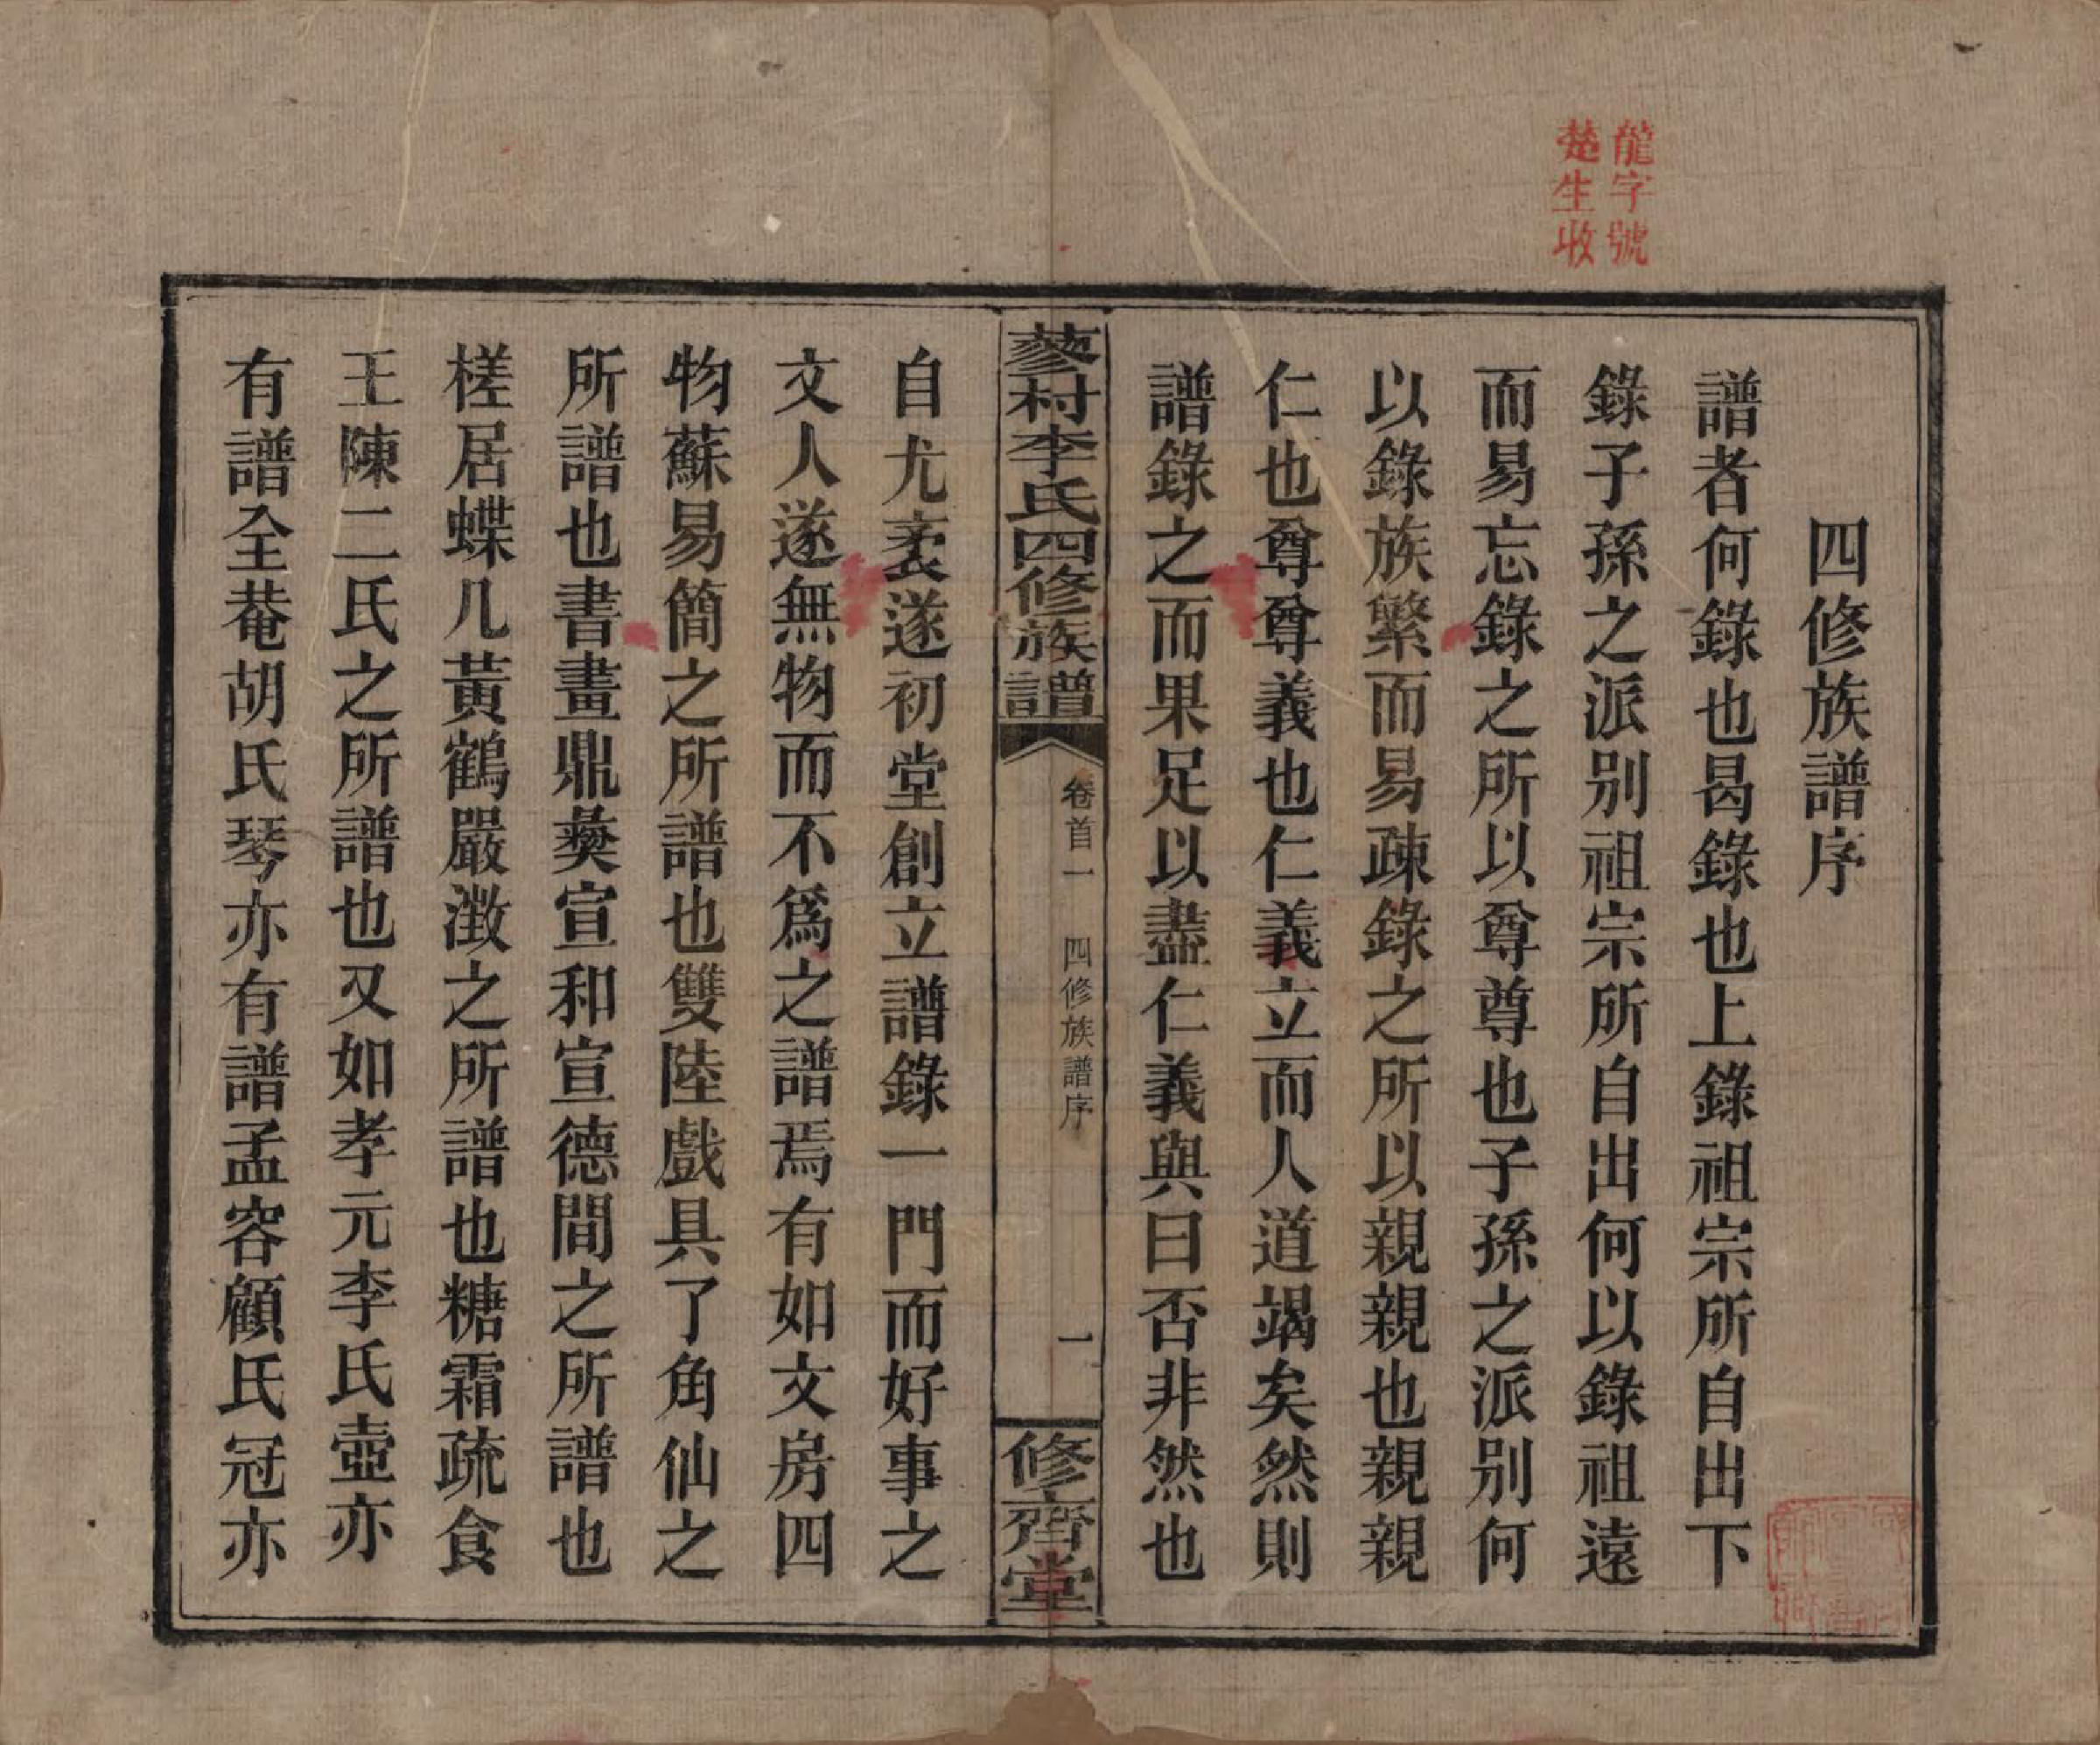 龍字號
楚生收
四修族譜序
譜者何錄也曷錄也上錄祖宗所自出下
錄子孫之派别祖宗所自出何以錄祖遠
而易忘錄之所以尊尊也子孫之派别何
以錄族繁而易疎錄之所以親親也親親
仁也尊尊義也仁義立而人道竭矣然則
譜錄之而果足以盡仁義與曰否非然也
蓼村李氏四修族譜
卷首一 四修族譜序
一
修齊堂
自尤袤遂初堂創立譜錄一門而好事之
文人遂無物而不爲之譜焉有如文房四
物蘇易簡之所譜也雙陸戲具了角仙之
所譜也書畫鼎彜宣和宣德間之所譜也
槎居蝶几黃鶴嚴澂之所譜也糖霜疏食
王陳二氏之所譜也又如孝元李氏壺亦
有譜全菴胡氏琴亦有譜孟容顧氏冠亦